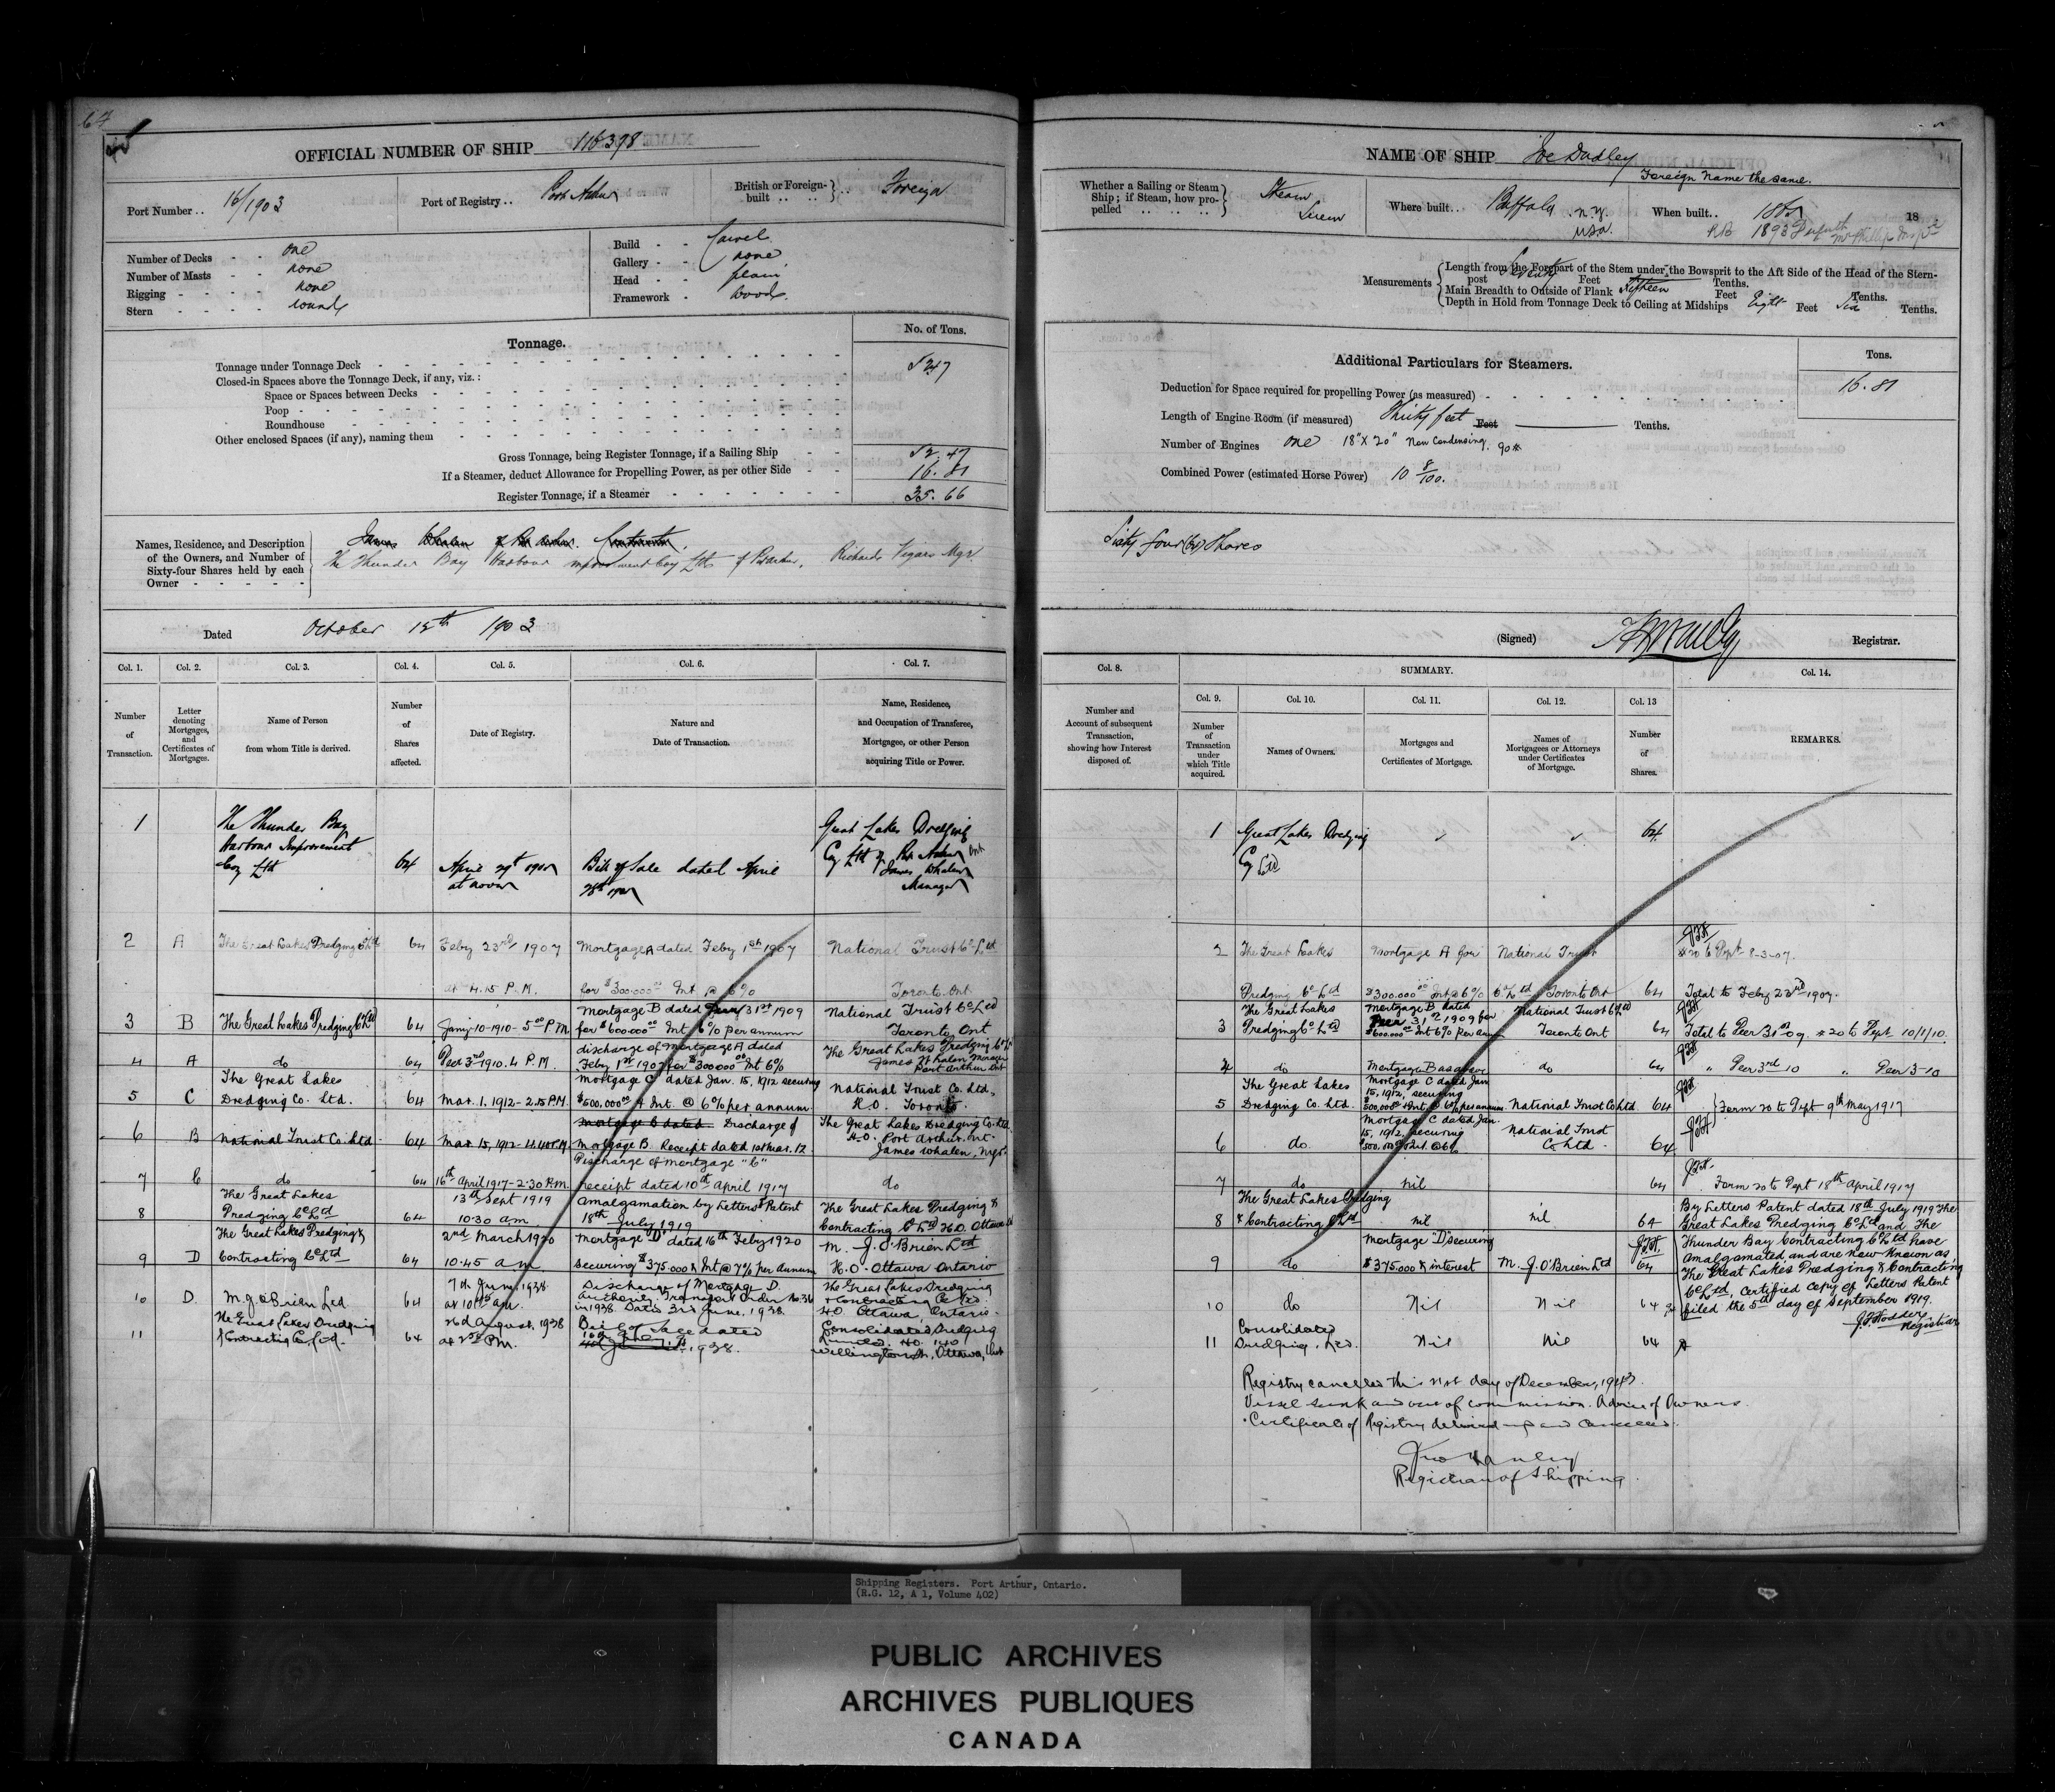 67
OFFICIAL NUMBER OF SHIP 116398
Port Number .. 16/1903
Port of Registry .. Port Arthur
British or Foreign-built .. .. Foreign
Number of Decks - - one
Number of Masts - - none
Rigging - - - - none
Stern - - - - round
Build - - Carvel
Gallery - - none
Head - - plain
Framework - Wood
Tonnage.
No. of Tons.
Tonnage under Tonnage Deck 52.47
Closed-in Spaces above the Tonnage Deck, if any, viz.:
Space or Spaces between Decks
Poop
Roundhouse
Other enclosed Spaces (if any), naming them
Gross Tonnage, being Register Tonnage, if a Sailing Ship 52.47
If a Steamer, deduct Allowance for Propelling Power, as per other Side 16.81
Register Tonnage, if a Steamer 35.66
Names, Residence, and Description of the Owners, and Number of Sixty-four Shares held by each Owner
James Whalen of Port Arthur. Contractor.
The Thunder Bay Harbour Improvement Coy Ltd of Pt Arthur, Richard Vigars Mgr.
Dated October 15th 1903
Col. 1. Col. 2. Col. 3. Col. 4. Col. 5. Col. 6. Col. 7.
Number of Transaction.
Letter denoting Mortgages, and Certificates of Mortgages.
Name of Person from whom Title is derived.
Number of Shares affected.
Date of Registry.
Nature and Date of Transaction.
Name, Residence, and Occupation of Transferee, Mortgagee, or other Person acquiring Title or Power.
1 The Thunder Bay Harbour Improvement Coy Ltd 64 April 29th at noon Bill of Sale dated April 28th Great Lakes Dredging Coy Ltd of Port Arthur Ont James Whalen Manager
2 A The Great Lakes Dredging Co Ltd 64 Feby 23rd 1907 at 4.15 P.M. Mortgage A dated Feby 1st 1907 for $300.000 00 Int @ 6% National Trust Co Ltd Toronto Ont
3 B The Great Lakes Dredging Co Ltd 64 Jany 10-1910- 5 00 P.M. Mortgage B dated 31st 1909 for $600.000 00 Int 6% per annum National Trust Co Ltd Toronto Ont
4 A do 64 Decr 3rd 1910. 4 P.M. discharge of Mortgage A dated Feby 1st 1907 for $300000 00 Int 6% The Great Lakes Dredging Co Ld James Whalen Manager Port Arthur Ont
5 C The Great Lakes Dredging Co. Ltd. 64 Mar. 1. 1912 - 2.15 P.M. Mortgage C dated Jan. 15, 1912 securing $500.000 00 & Int. @ 6% per annum National Trust Co. Ltd., H.O. Toronto.
6 B National Trust Co. Ltd 64 Mar. 15, 1912 - 4.40 P.M. Mortgage C dated Discharge of Mortgage B. Receipt dated 1st Mar. 12. The Great Lakes Dredging Co. Ltd. H.O. Port Arthur. Ont. James Whalen, Mgr.
7 C do 64 16th April 1917 - 2.30 P.m. Discharge of Mortgage "C" receipt dated 10th April 1917 do
8 The Great Lakes Dredging Co Ltd 64 13th Sept 1919 10.30 am Amalgamation by Letters Patent 18th July 1919 The Great Lakes Dredging & Contracting Co Ltd H.O. Ottawa
9 D The Great Lakes Dredging & Contracting Co Ltd 64 2nd March 1920 10.45 am Mortgage "D" dated 16th Feby 1920 securing $375.000 & Int @ 7% per annum M. J. O'Brien Ltd H.O. Ottawa Ontario
10 D. M. J. O'Brien Ltd 64 7th June, 1938 at 10 00 am. Discharge of Mortgage D. Authority: Transfer Order No. 36 in 1938. Dated 3rd June, 1938. The Great Lakes Dredging & Contracting Co. Ltd. H.O. Ottawa, Ontario.
11 The Great Lakes Dredging & Contracting Co. Ltd. 64 26th August, 1938 at 2 30 P.M. Bill of Sale dated 1938. Consolidated Dredging Limited. H.O. 140 Wellington St., Ottawa, Ont
NAME OF SHIP Joe Dudley
Foreign Name the same.
Whether a Sailing or Steam Ship; if Steam, how propelled Steam Screw
Where built .. Buffalo N.Y. USA.
When built .. 18
1893
Measurements
Length from the Forepart of the Stem under the Bowsprit to the Aft Side of the Head of the Sternpost Seventy Feet Tenths.
Main Breadth to Outside of Plank Fifteen Feet Tenths.
Depth in Hold from Tonnage Deck to Ceiling at Midships Eight Feet Six Tenths.
Additional Particulars for Steamers.
Tons.
Deduction for Space required for propelling Power (as measured) 16.81
Length of Engine Room (if measured) Thirty feet Feet Tenths.
Number of Engines one 18" X 20" Non Condensing. 90#
Combined Power (estimated Horse Power) 10 8/100.
Sixty four (64) Shares
(Signed) Registrar.
Col. 8. SUMMARY. Col. 14.
Col. 9. Col. 10. Col. 11. Col. 12. Col. 13
Number and Account of subsequent Transaction, showing how Interest disposed of.
Number of Transaction under which Title acquired.
Names of Owners.
Mortgages and Certificates of Mortgage.
Names of Mortgagees or Attorneys under Certificates of Mortgage.
Number of Shares.
REMARKS.
1 Great Lakes Dredging Coy Ltd 64
2 The Great Lakes Dredging Co Ltd Mortgage A for $300.000 00 Int @ 6% National Trust Co Ltd Toronto Ont 64 #20 to Dept 8-3-07. Total to Feby 23rd 1907.
3 The Great Lakes Dredging Co Ltd Mortgage B dated Decr 31st 1909 for $600.000 00 Int 6% per ann National Trust Co Ltd Toronto Ont 64 Total to Decr 31st 09. #20 to Dept 10/1/10.
4 do Mortgage B as above do 64 " Decr 3rd 10 " Decr 3-10
5 The Great Lakes Dredging Co. Ltd. Mortgage C dated Jan 15, 1912, securing $500,000 & Int. @ 6% per annum. National Trust Co Ltd 64 Form 20 to Dept 9th May 1917
6 do. Mortgage C dated Jan. 15, 1912, securing $500.000 & Int. @ 6% National Trust Co Ltd 64
7 do nil 64 Form 20 to Dept 18th April 1917
8 The Great Lakes Dredging & Contracting Co Ltd nil nil 64
9 do Mortgage "D" securing $375.000 & interest M. J. O'Brien Ltd 64
By Letters Patent dated 18th July 1919 The
Great Lakes Dredging Co Ltd and The
Thunder Bay Contracting Co Ltd have
amalgamated and are now known as
The Great Lakes Dredging & Contracting
Co Ltd, Certified Copy of Letters Patent
filed the 5th day of September 1919.
Registrar
10 do Nil Nil 64
11 Consolidated Dredging Ltd. Nil Nil 64
Registry cancelled this 21st day of December,
Vessel sunk and out of commission. Advice of Owners.
Certificate of Registry delivered up and cancelled.
Registrar of Shipping.
Shipping Registers. Port Arthur, Ontario.
(R.G. 12, A 1, Volume 402)
PUBLIC ARCHIVES
ARCHIVES PUBLIQUES
CANADA